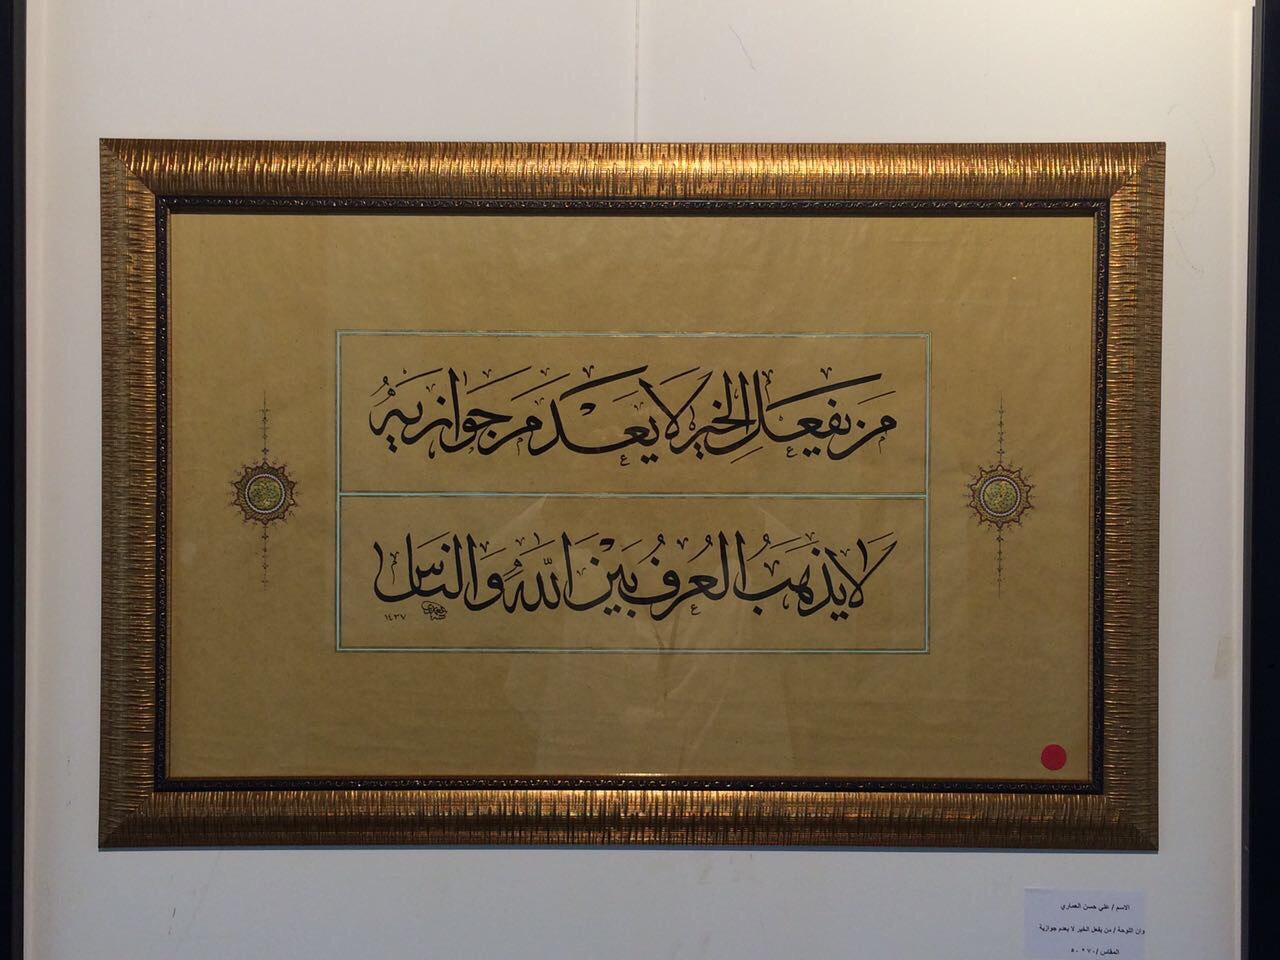 من يفعل الخير لا يعدم جوازيه
لا يذهب العرف بين الله والناس
١٤٣٧
الاسم / علي حسن العماري
وان اللوحة / من يفعل الخير لا يعدم جوازية
المقاس / ٧٠ * ٥٠